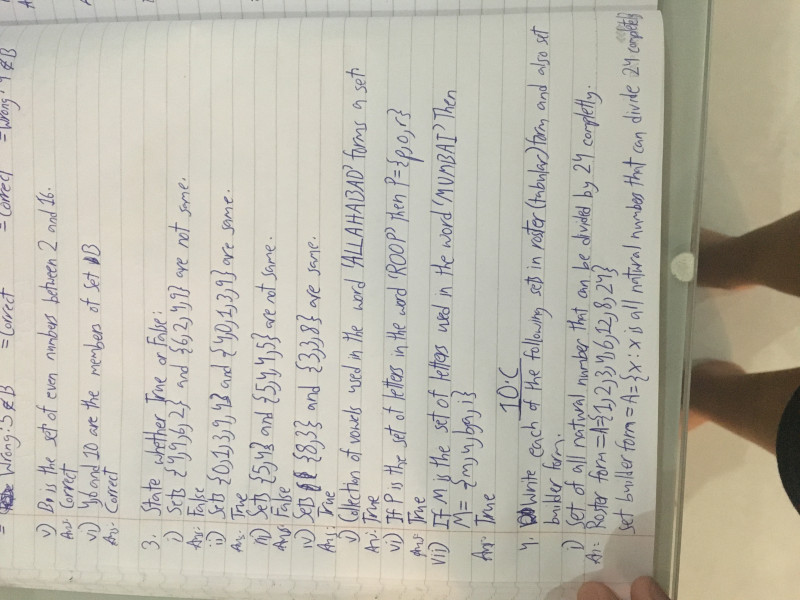 = Wrong. 5 ∉ B = Correct = Correct = Wrong. 9 ∉ B
v) B, is the set of even numbers between 2 and 16.
Ans: Correct
vi) 4,6 and 10 are the members of Set B
Ans: Correct
3. State whether True or False:
i) Sets {4,9,6,2} and {6,2,4,9} are not same.
Ans: False
ii) Sets {0,1,3,9,4} and {4,0,1,3,9} are same.
Ans: True
iii) Sets {5,4} and {5,4,4,5} are not same.
Ans: False
iv) Sets {8,3} and {3,3,8} are same.
Ans: True
v) Collection of vowels used in the word 'ALLAHABAD' forms a set
Ans: True
vi) If P is the set of letters in the word 'ROOP' then P={p,o,r}
Ans: True
vii) If M is the set of letters used in the word 'MUMBAI' Then
M = {m,u,b,a,i}
Ans: True
10.C
4. Write each of the following sets in roster (tabular) form and also set
builder form.
i) Set of all natural number that can be divided by 24 completly.
A:= Roster form = A={1,2,3,4,6,12,8,24}
Set builder form = A= {x : x is all natural numbers that can divide 24 completely